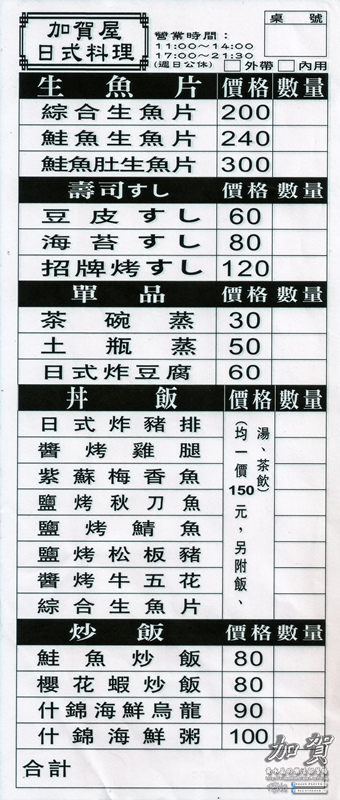 加賀屋
日式料理
桌號
營業時間：
11:00～14:00
17:00～21:30
(週日公休) □外帶 □內用
生魚片 價格 數量
綜合生魚片 200
鮭魚生魚片 240
鮭魚肚生魚片 300
壽司すし 價格 數量
豆皮すし 60
海苔すし 80
招牌烤すし 120
單品 價格 數量
茶碗蒸 30
土瓶蒸 50
日式炸豆腐 60
丼飯 價格 數量
日式炸豬排
醬烤雞腿
紫蘇梅香魚
鹽烤秋刀魚
鹽烤鯖魚
鹽烤松板豬
醬烤牛五花
綜合生魚片
(均一價150元，另附飯、
湯、茶飲)
炒飯 價格 數量
鮭魚炒飯 80
櫻花蝦炒飯 80
什錦海鮮烏龍 90
什錦海鮮粥 100
合計
加賀